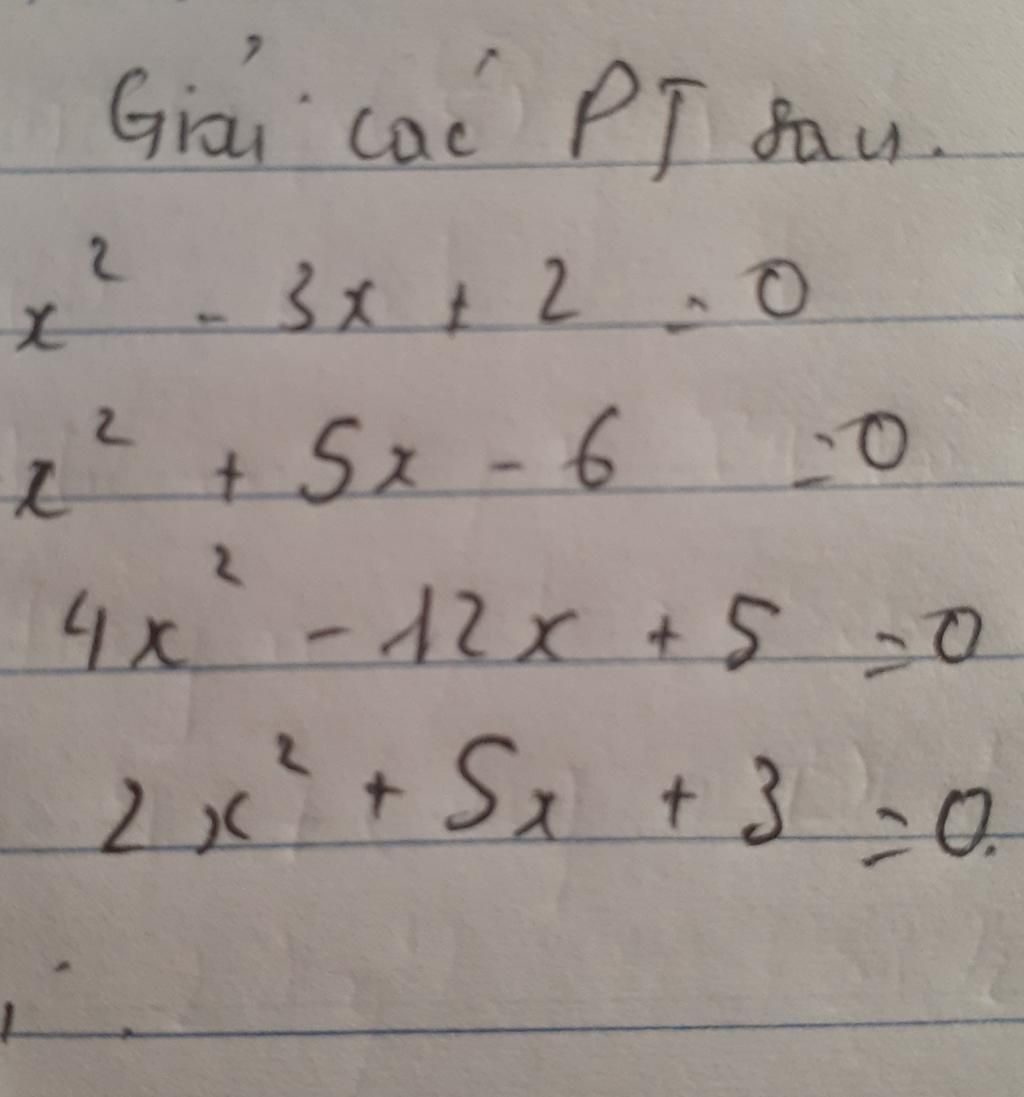 Giải các PT sau.
x² - 3x + 2 = 0
x² + 5x - 6 = 0
4x² - 12x + 5 = 0
2x² + 5x + 3 = 0.